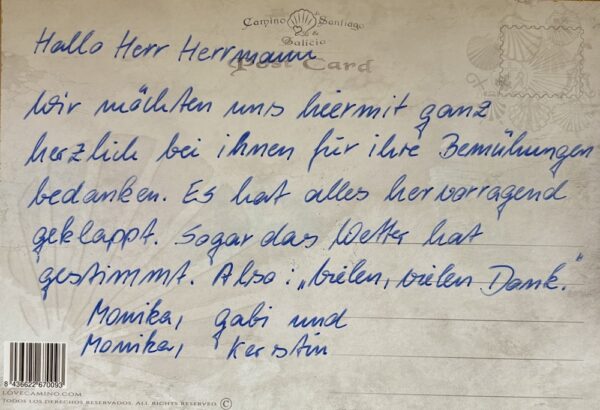 Camino Santiago
de
Galicia
Post Card
Hallo Herr Herrmann
Wir möchten uns hiermit ganz
herzlich bei ihnen für ihre Bemühungen
bedanken. Es hat alles hervorragend
geklappt. Sogar das Wetter hat
gestimmt. Also: „vielen, vielen Dank."
Monika, gabi und
Monika, Kerstin
8 436622 670093
LOVECAMINO.COM
TODOS LOS DERECHOS RESERVADOS. ALL RIGHTS RESERVED ©